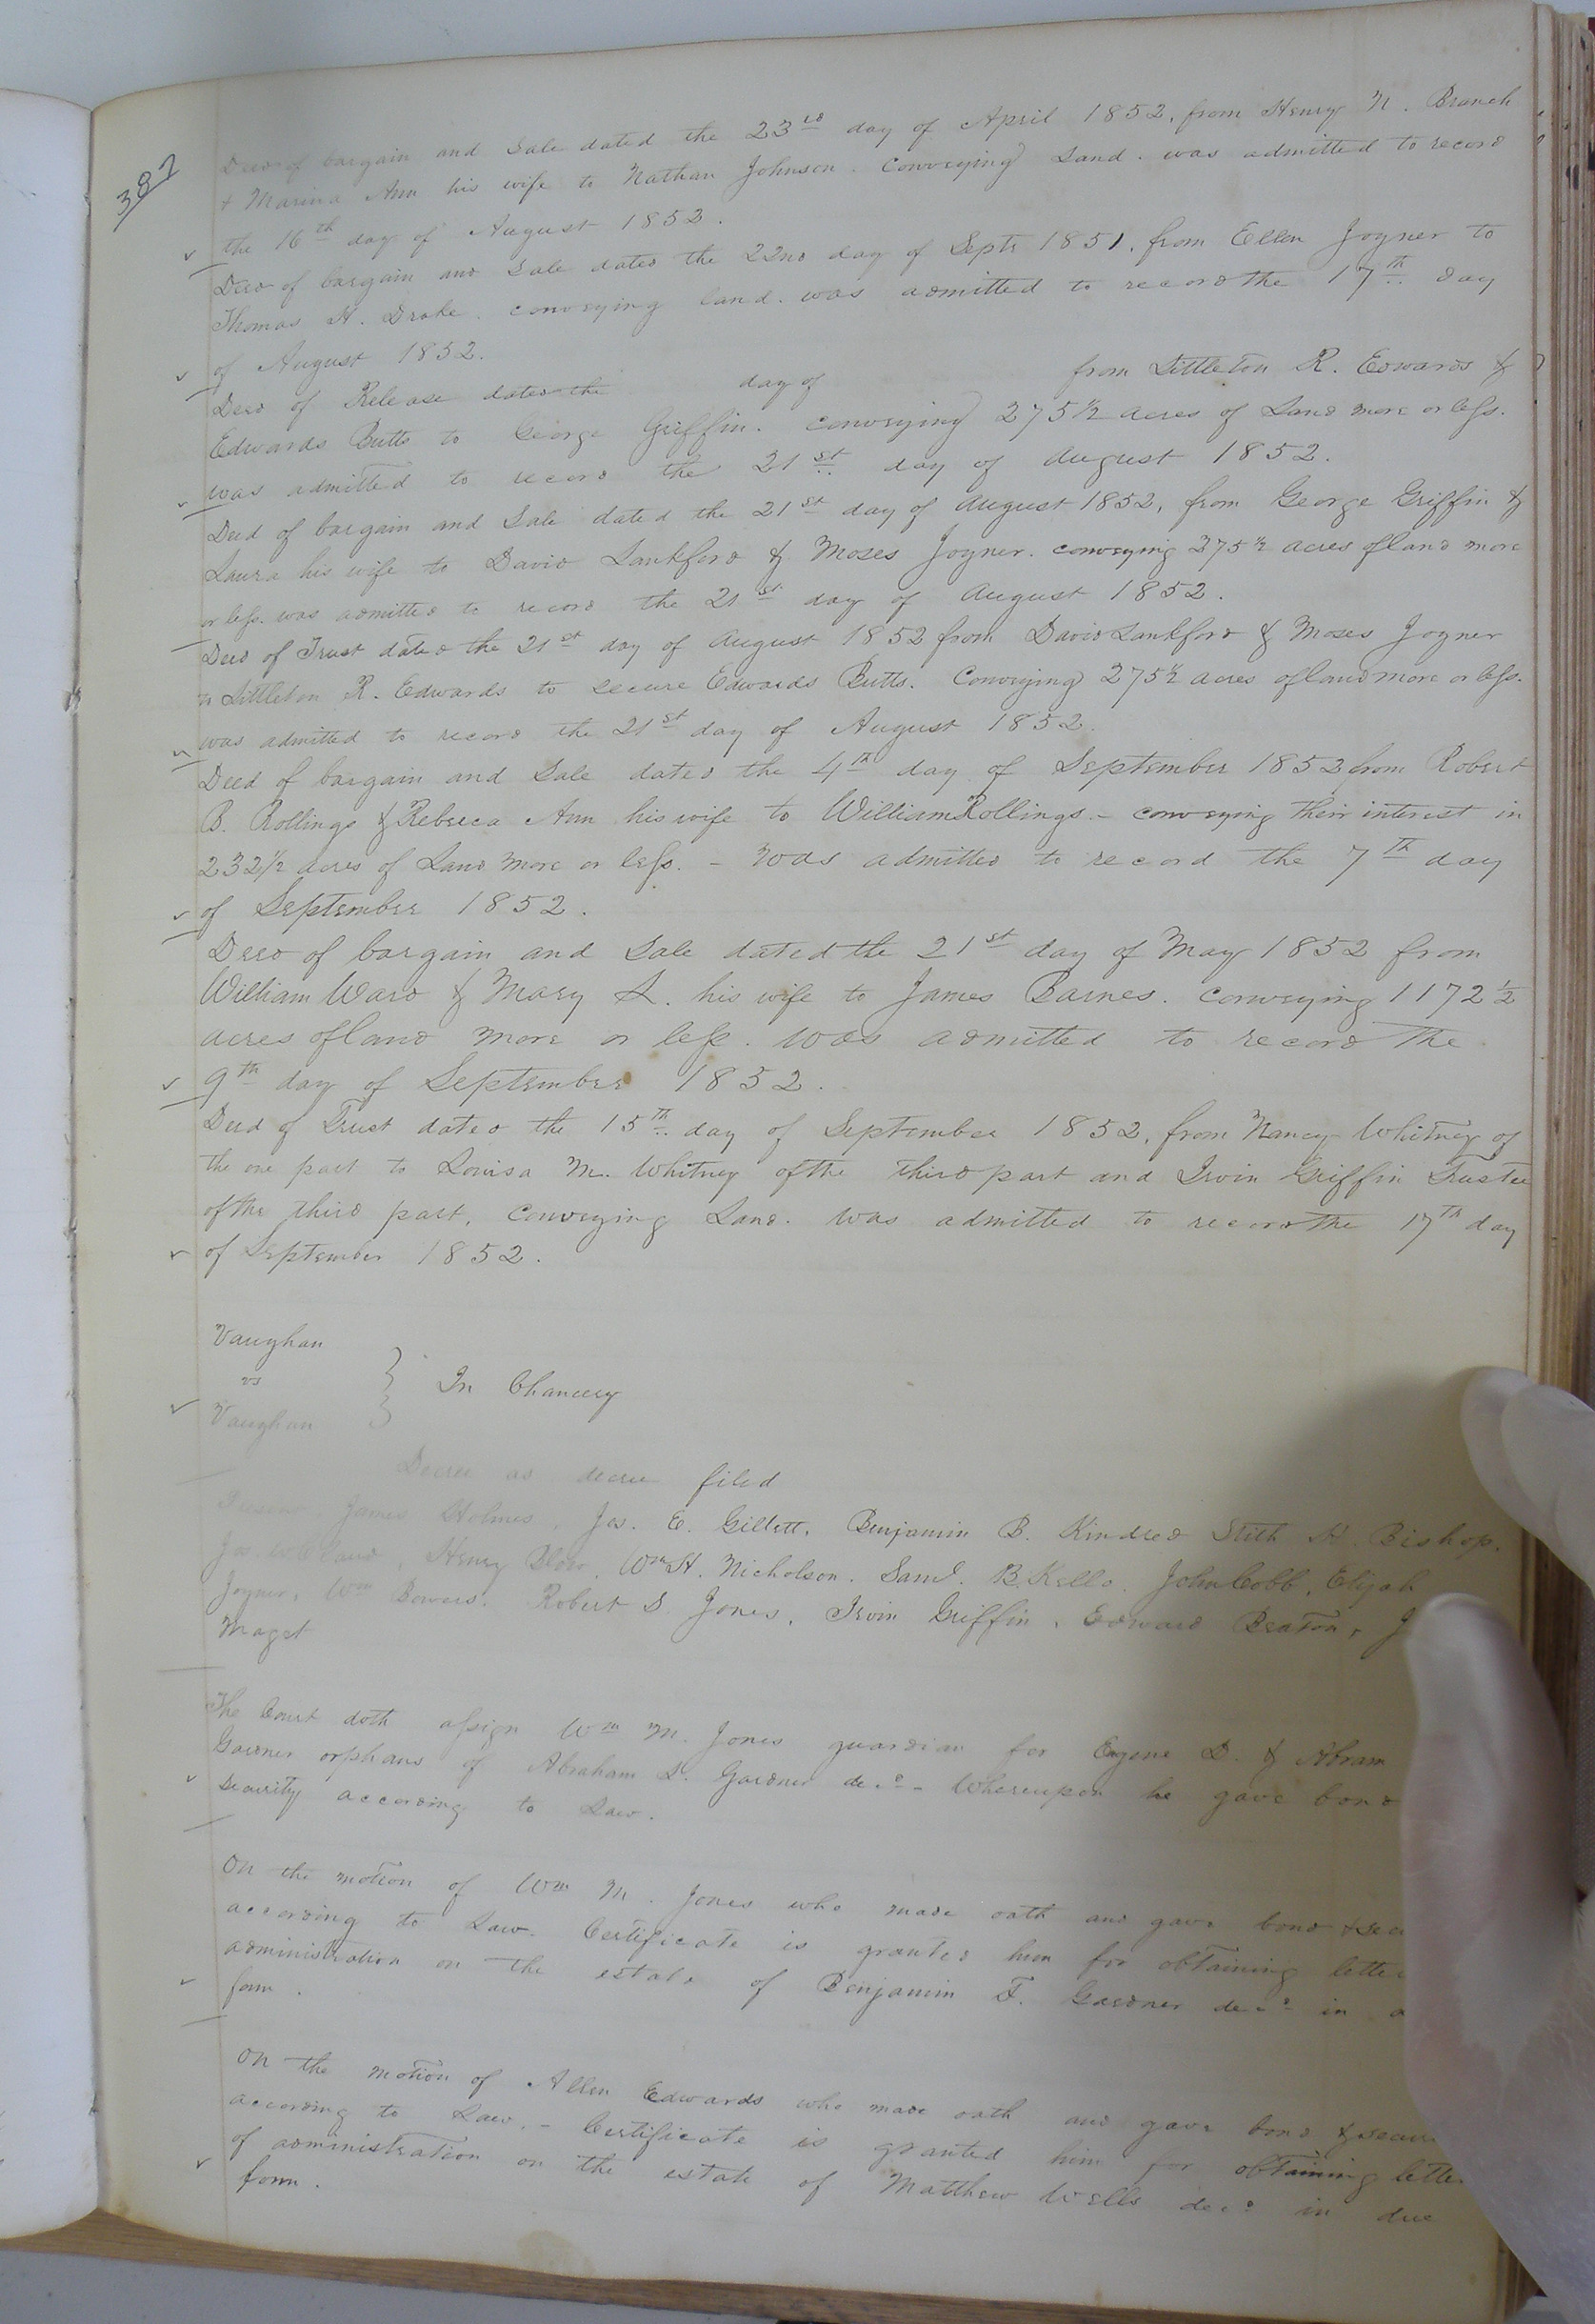 382
Deed of bargain and Sale dated the 23rd day of April 1852, from Henry N. Branch
& Marina Ann his wife to Nathan Johnson. Conveying Land. was admitted to record
the 16th day of August 1852.
Deed of bargain and Sale dated the 22nd day of Septr 1851, from Ellen Joyner to
Thomas H. Drake. conveying land. was admitted to record the 17th day
of August 1852.
Deed of Release dated the day of from Littleton R. Edwards &
Edwards Butts to George Griffin. conveying 275½ acres of Land more or less.
was admitted to record the 21st day of August 1852.
Deed of bargain and Sale dated the 21st day of August 1852, from George Griffin &
Laura his wife to David Lankford & Moses Joyner. conveying 275½ acres of land more
or less. was admitted to record the 21st day of August 1852.
Deed of Trust dated the 21st day of August 1852 from David Lankford & Moses Joyner
to Littleton R. Edwards to secure Edwards Butts. Conveying 275½ acres of land more or less.
was admitted to record the 21st day of August 1852.
Deed of bargain and Sale dated the 4th day of September 1852 from Robert
B. Rollings & Rebecca Ann his wife to William Rollings. - conveying their interest in
232½ acres of Land more or less. - was admitted to record the 7th day
of September 1852.
Deed of bargain and Sale dated the 21st day of May 1852 from
William Ward & Mary L. his wife to James Barnes. conveying 1172½
acres of land more or less. was admitted to record the
9th day of September 1852.
Deed of Trust dated the 15th day of September 1852, from Nancy Whitney of
the one part to Louisa M. Whitney of the third part and Irvin Griffin Trustee
of the third part, conveying Land. was admitted to record the 17th day
of September 1852.
Vaughan
vs } In Chancery
Vaughan
Decree as decree filed
Present James Holmes, Jas. E. Gillett, Benjamin B. Kindred Stith H. Bishop.
Henry Blow, Wm H. Nicholson. Saml. B. Kello. John Cobb, Elijah
Joyner, Wm Bowers. Robert S. Jones, Irvin Griffin, Edward Beaton, J
Maget
The Court doth assign Wm M. Jones guardian for Eugene D. & Abram
Gardner orphans of Abraham S. Gardner decd - Whereupon he gave bond
security according to Law.
On the motion of Wm M. Jones who made oath and gave bond & sec
according to Law. Certificate is granted him for obtaining lette
administration on the estate of Benjamin F. Gardner decd in
form.
On the motion of Allen Edwards who made oath and gave bond & secur
according to Law. - Certificate is granted him for obtaining lette
of administration on the estate of Matthew Wells decd in due
form.